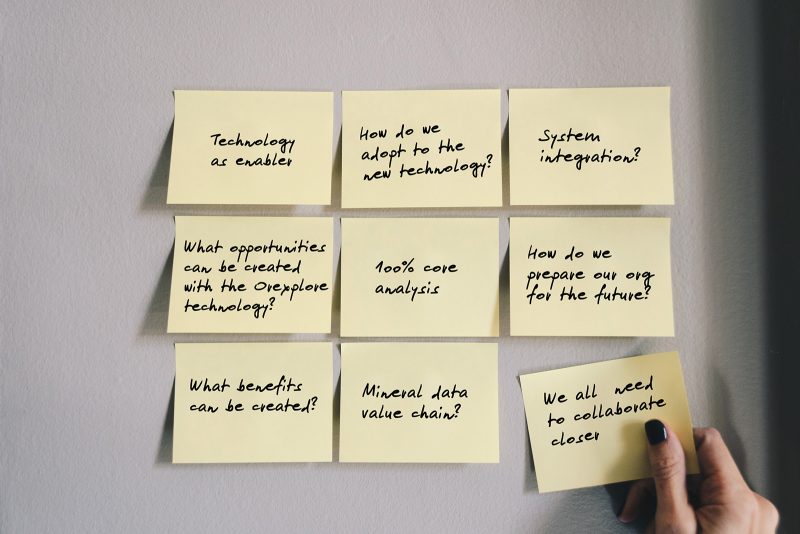 Technology
as enabler
How do we
adopt to the
new technology?
System
integration?
What opportunities
can be created
with the Orexplore
technology?
100% core
analysis
How do we
prepare our org
for the future?
What benefits
can be created?
Mineral data
value chain?
We all need
to collaborate
closer